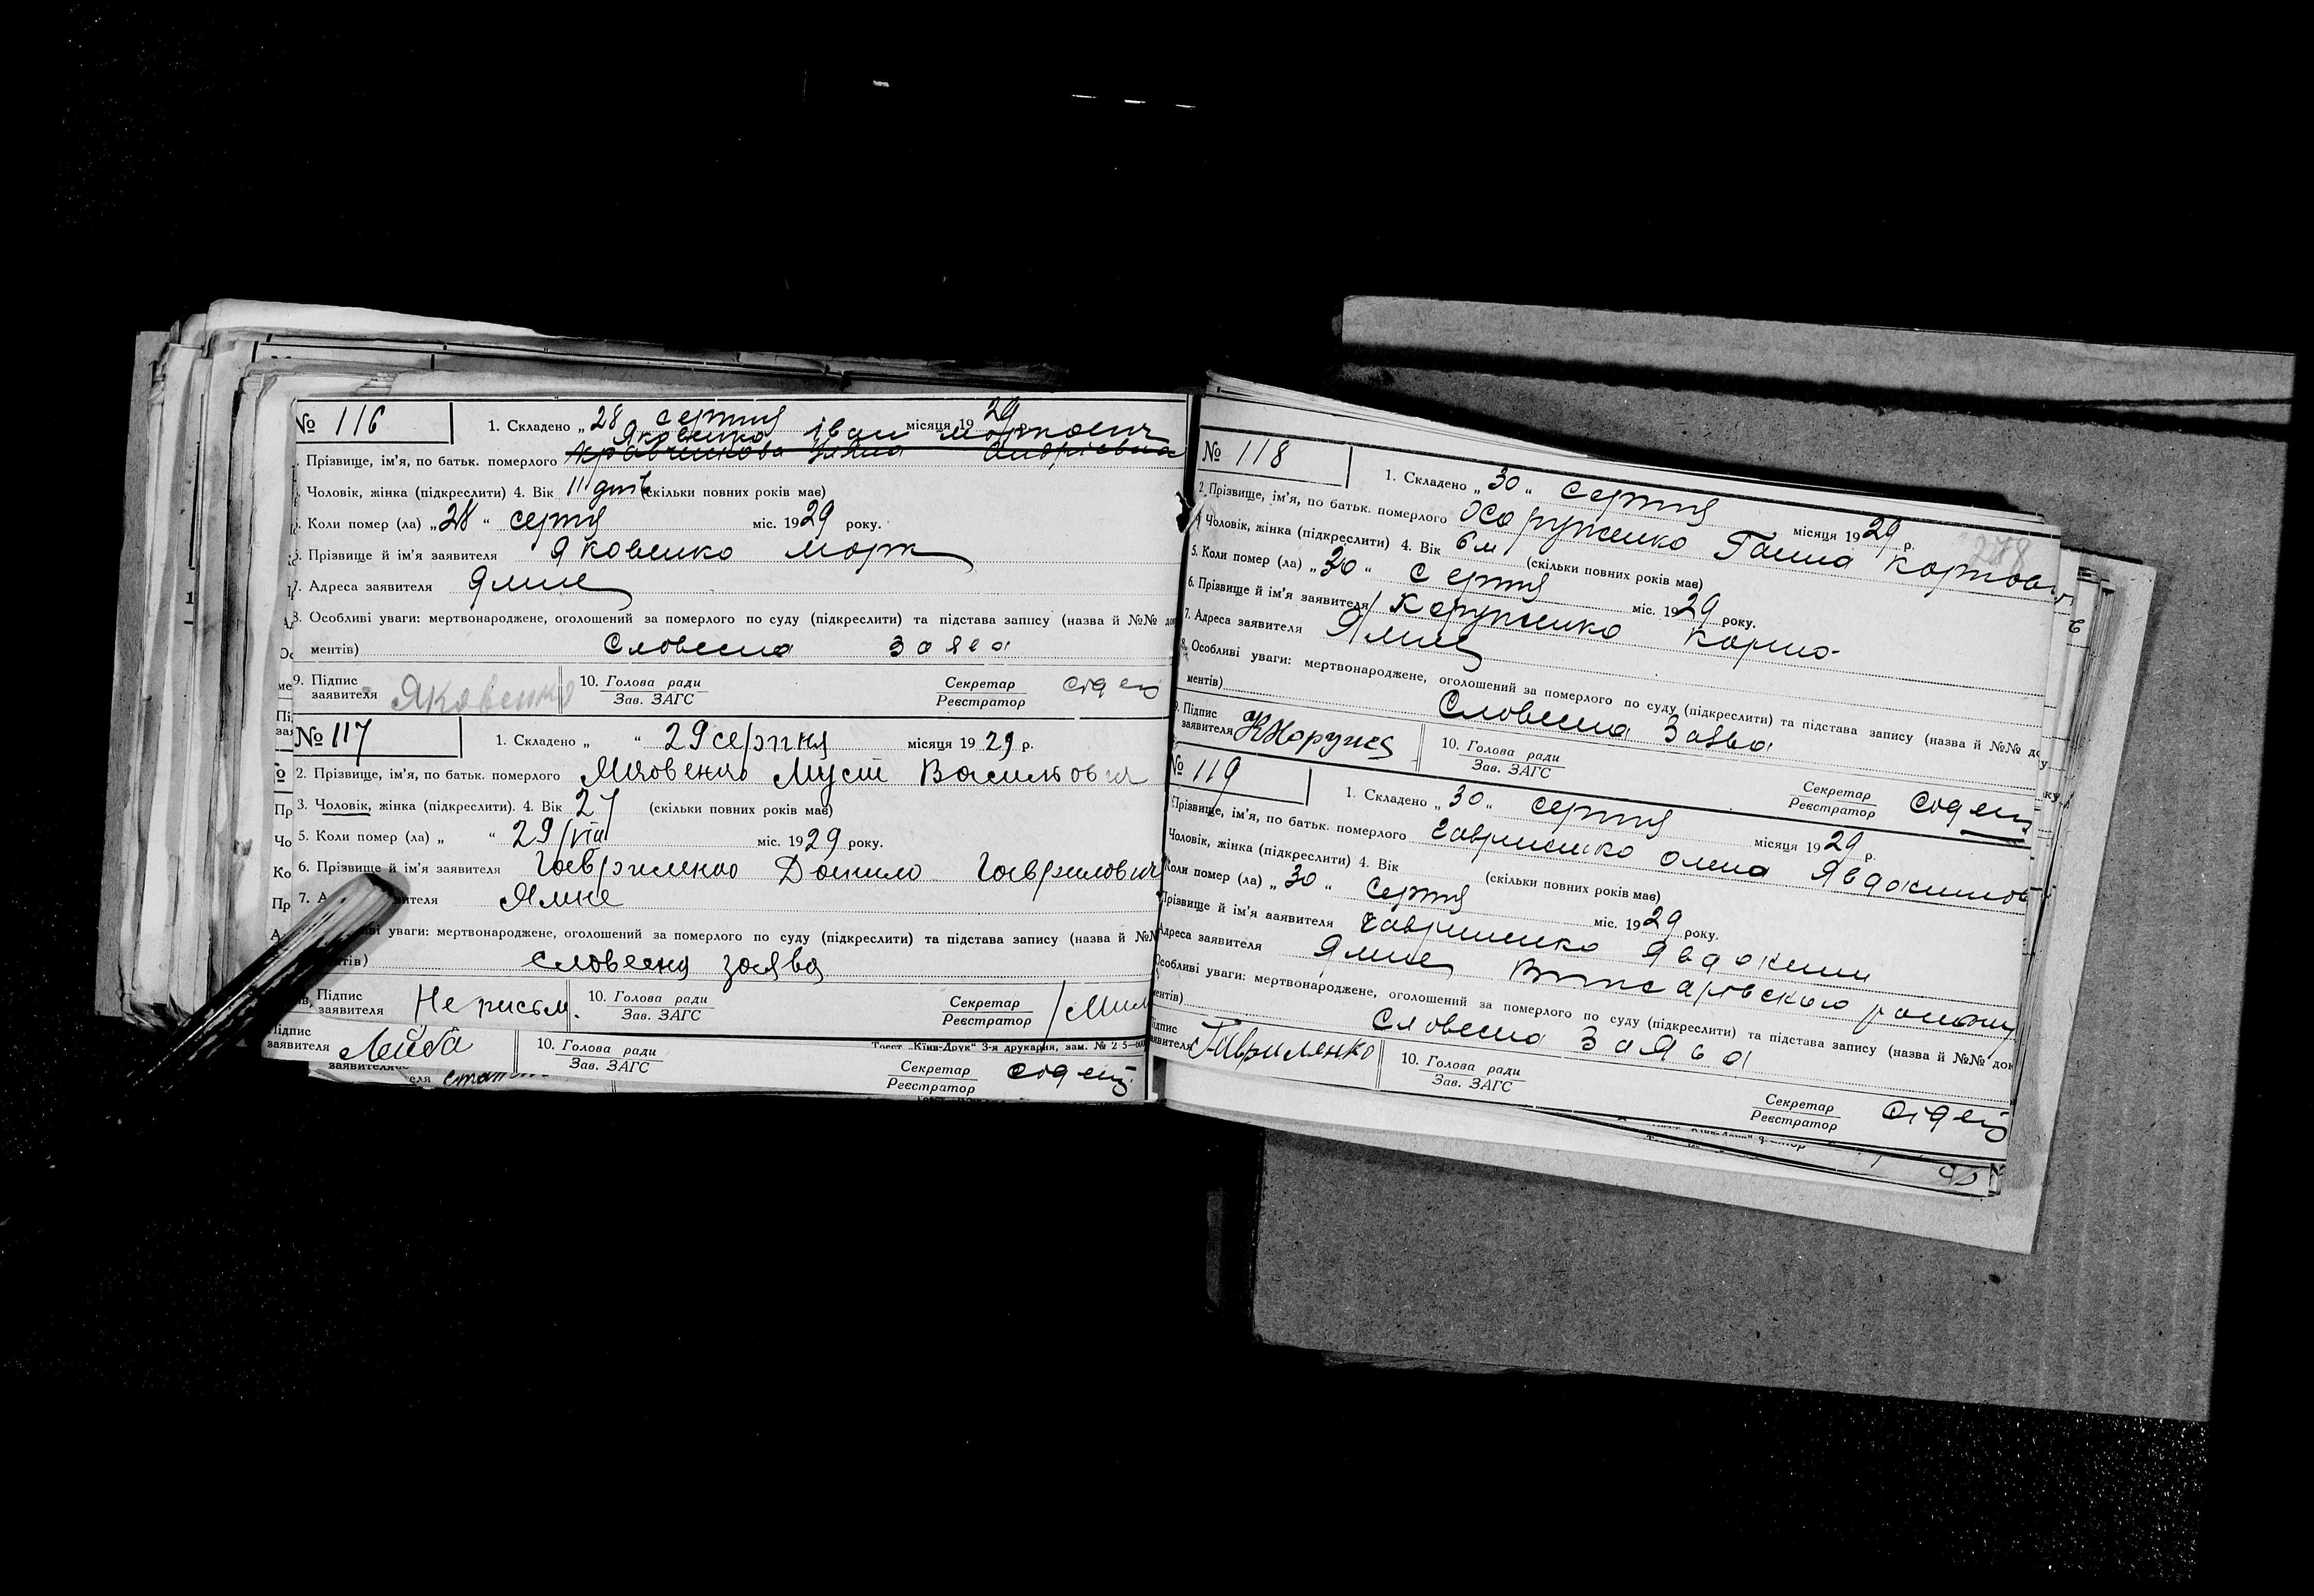 № 116
1. Складено „28 серпня місяця 1929
Яковенко Іван Маркович
Прізвище, ім'я, по батьк. померлого Андріївна
Чоловік, жінка (підкреслити) 4. Вік 11 днів (скільки повних років має)
Коли помер (ла) „28“ серпня міс. 1929 року.
Прізвище й ім'я заявителя Яковенко Марк
7. Адреса заявителя Ямне
8. Особливі уваги: мертвонароджене, оголошений за померлого по суду (підкреслити) та підстава запису (назва й №№ до
ментів) Словесна заява
9. Підпис заявителя Яковенко 10. Голова ради Зав. ЗАГС Секретар Реєстратор
№ 117
1. Складено „ “ 29 серпня місяця 1929 р.
2. Прізвище, ім'я, по батьк. померлого Мусій Васильович
3. Чоловік, жінка (підкреслити). 4. Вік 27 (скільки повних років має)
5. Коли помер (ла) „ “ 29/VIII міс. 1929 року.
6. Прізвище й ім'я заявителя Гавриленко Данило Гаврилович
7. А вителя Ямне
уваги: мертвонароджене, оголошений за померлого по суду (підкреслити) та підстава запису (назва й №№
тів) словесна заява
Підпис заявителя Не письм. 10. Голова ради Зав. ЗАГС Секретар Реєстратор
Трест „Київ-Друк“ 3-я друкарня, зам. №
Підпис заявителя 10. Голова ради Зав. ЗАГС Секретар Реєстратор
№ 118
1. Складено „30“ серпня місяця 1929 р.
2. Прізвище, ім'я, по батьк. померлого Ганна
Чоловік, жінка (підкреслити) 4. Вік 6 м (скільки повних років має)
5. Коли помер (ла) „30“ серпня міс. 1929 року.
6. Прізвище й ім'я заявителя
7. Адреса заявителя Ямне
Особливі уваги: мертвонароджене, оголошений за померлого по суду (підкреслити) та підстава запису (назва й №№ до
ментів) Словесна заява
Підпис заявителя 10. Голова ради Зав. ЗАГС Секретар Реєстратор
№ 119
1. Складено „30“ серпня місяця 1929 р.
Прізвище, ім'я, по батьк. померлого Гавриленко Олена
Чоловік, жінка (підкреслити) 4. Вік (скільки повних років має)
Коли помер (ла) „30“ серпня міс. 1929 року.
Прізвище й ім'я заявителя Гавриленко Явдоким
Адреса заявителя Ямне району
Особливі уваги: мертвонароджене, оголошений за померлого по суду (підкреслити) та підстава запису (назва й №№ док
ментів) Словесна заява
Підпис заявителя Гавриленко 10. Голова ради Зав. ЗАГС Секретар Реєстратор